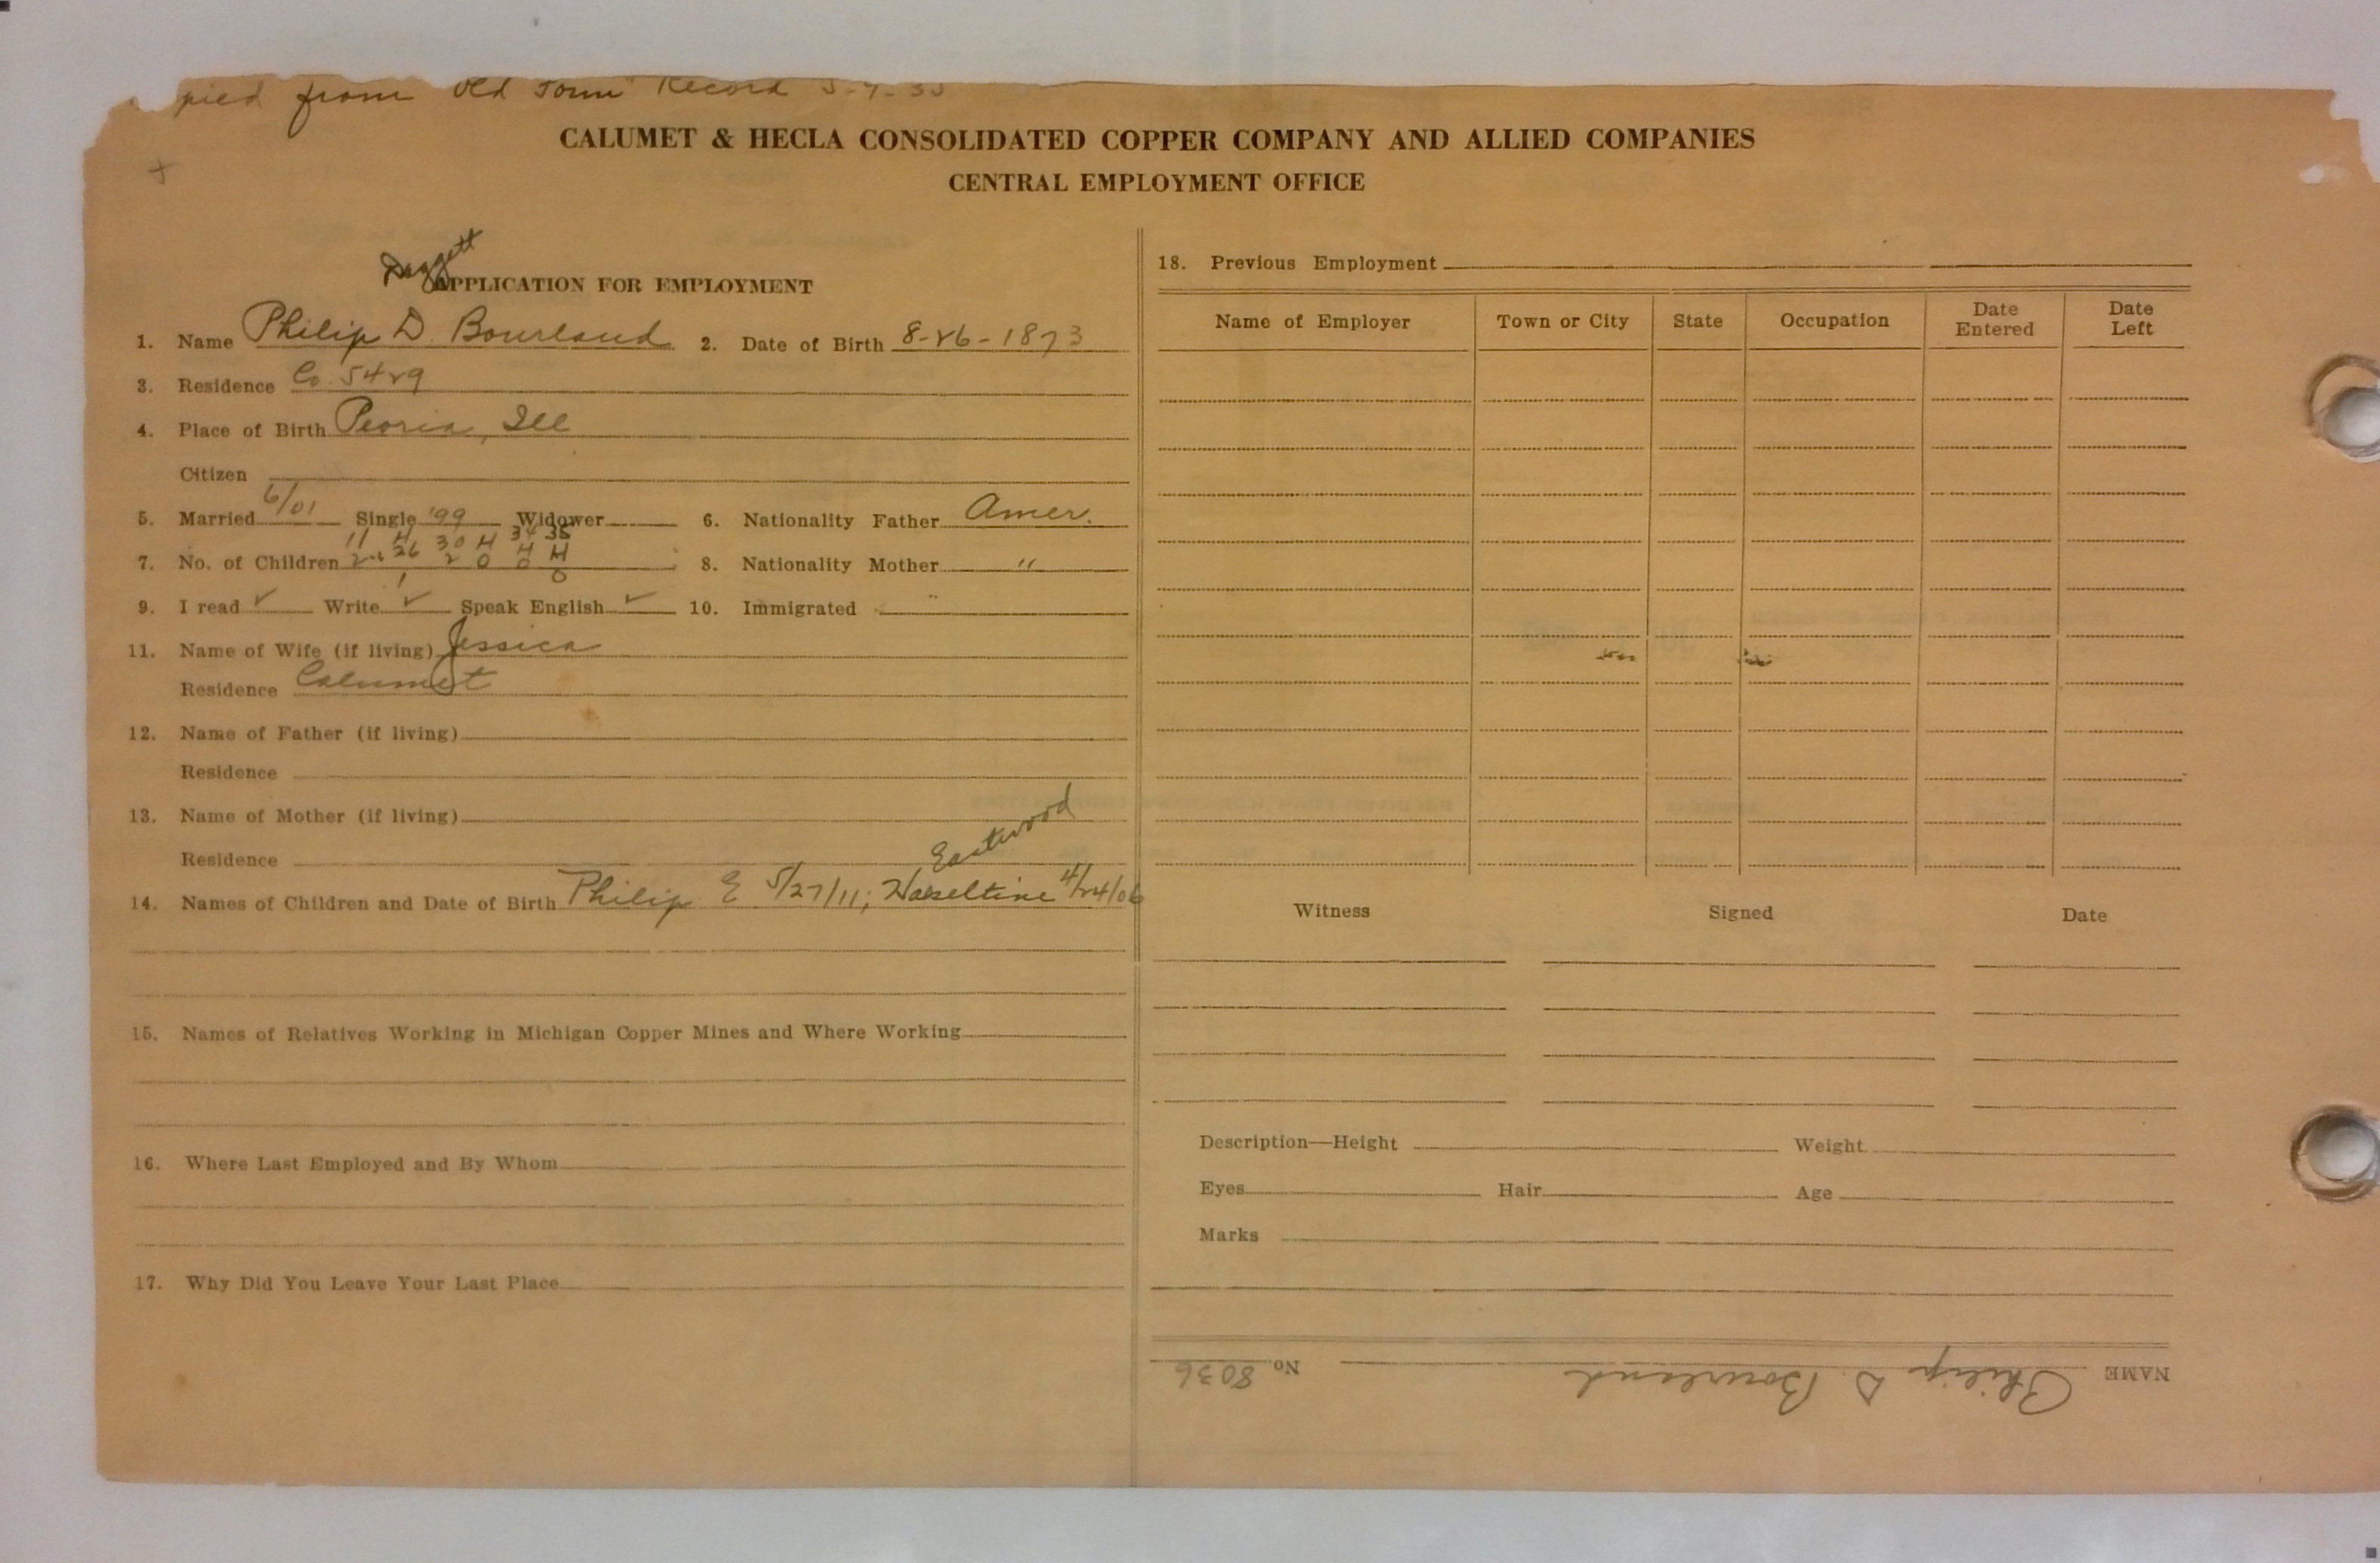 pied from Old Form Record 5-9-35
CALUMET & HECLA CONSOLIDATED COPPER COMPANY AND ALLIED COMPANIES
CENTRAL EMPLOYMENT OFFICE
Daggett
APPLICATION FOR EMPLOYMENT
1. Name Philip D. Bourland 2. Date of Birth 8-26-1873
3. Residence Co. 5429
4. Place of Birth Peoria, Ill
Citizen
5. Married 6/01 Single '99 Widower 6. Nationality Father Amer.
11 H 30 H 34 35
7. No. of Children 26 2 0 0 0 8. Nationality Mother "
9. I read ✓ Write ✓ Speak English ✓ 10. Immigrated
11. Name of Wife (if living) Jessica
Residence Calumet
12. Name of Father (if living)
Residence
13. Name of Mother (if living)
Residence
Eastwood
14. Names of Children and Date of Birth Philip E 5/27/11; Haseltine 4/24/06
15. Names of Relatives Working in Michigan Copper Mines and Where Working
16. Where Last Employed and By Whom
17. Why Did You Leave Your Last Place
18. Previous Employment
Name of Employer Town or City State Occupation Date Entered Date Left
Witness Signed Date
Description—Height Weight
Eyes Hair Age
Marks
NAME Philip D. Bourland No. 8036